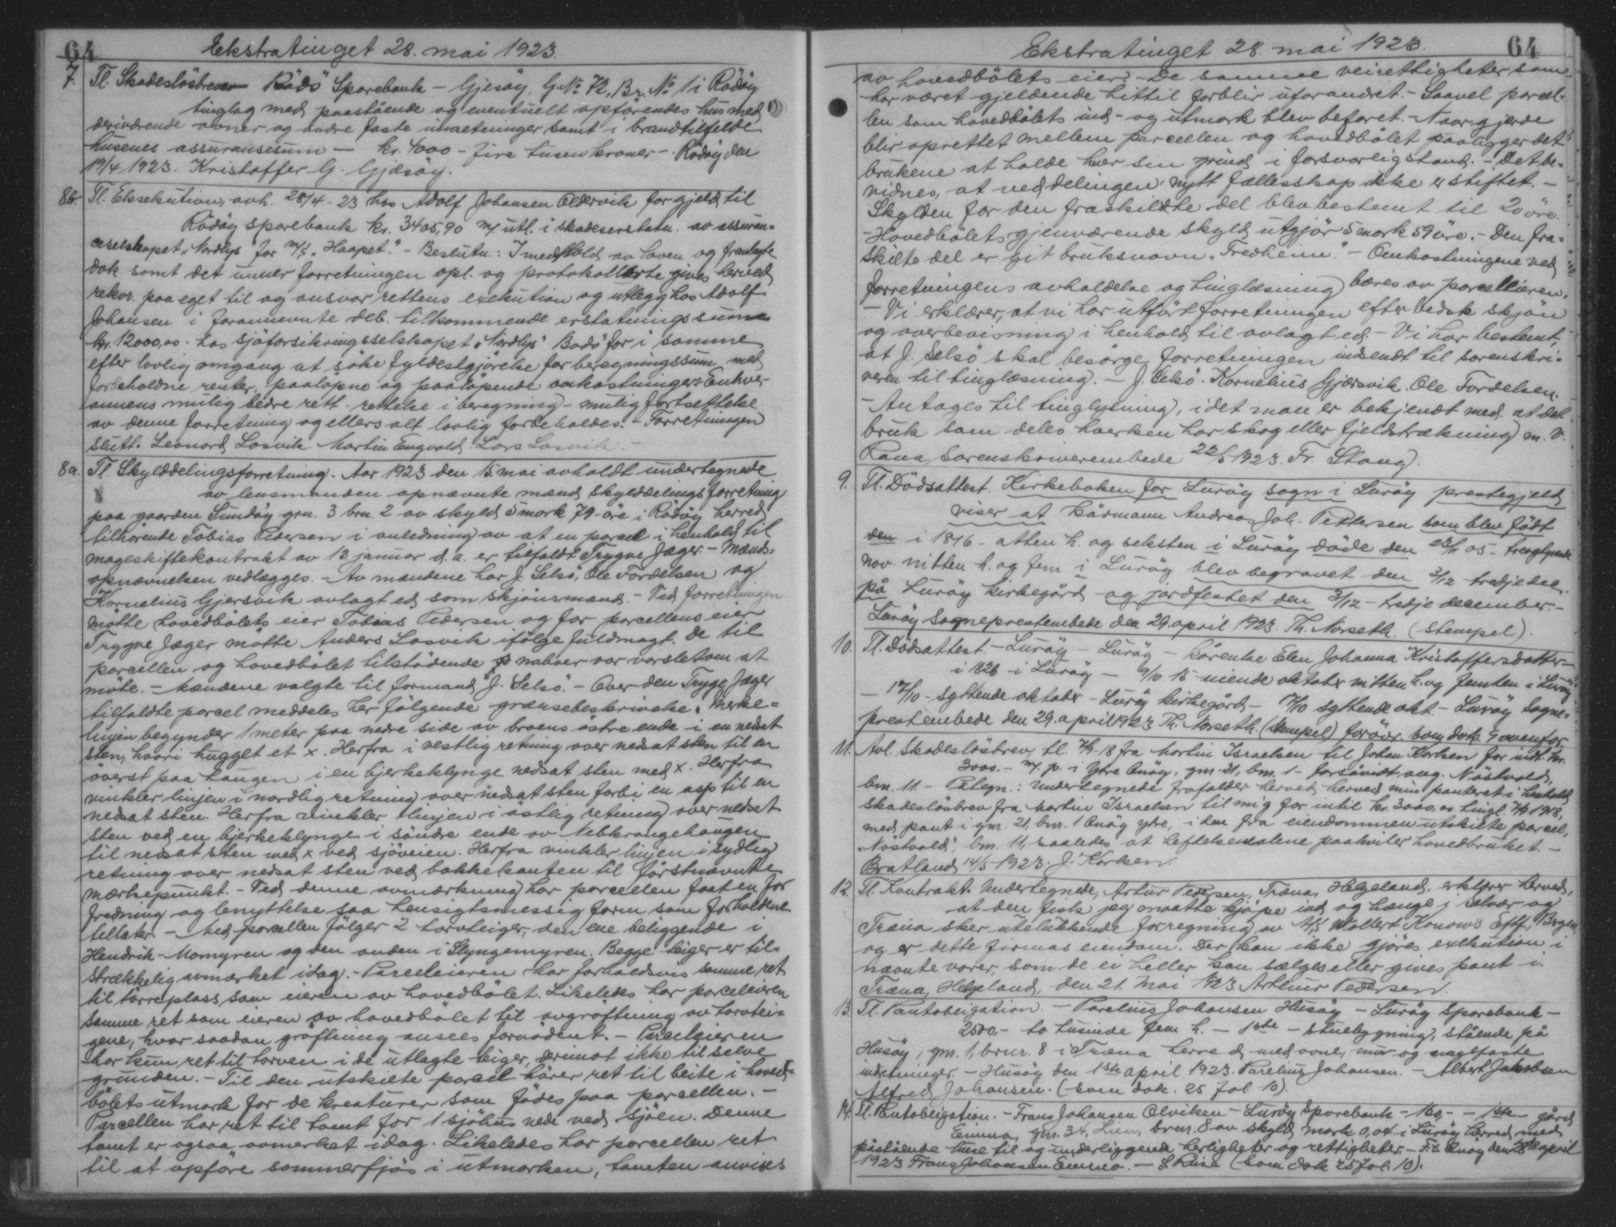 64 Ekstratinget 28. mai 1923.
7. Tl. Skadeslösbrev Rödö Sparebank - Gjesöy, G.№ 72, Br. № 1 i Rödöy
tinglag med paastående og eventuelt opförendes hus med
derværende ovner og andre faste indretninger samt i brandtilfelde
husenes assuransesum - kr. 4000 - fire tusen kroner - Rödöy den
19/4 1923. Kristoffer G. Gjæsöy.
8b. Tl. Eksekution, avh. 28/4-23 hos Adolf Johansen Oldervik for gjeld til
Rödöy sparebank kr. 3405,90 m/ utl. i skadeserstatn. av assuran-
ceselskapet "Nordlys" for m/k "Haapet". - Beslutn.: I medhold av loven og fremlagte
dok samt det under forretningen opl. og protokollerte gives herved
rekv. paa eget til og ansvar rettens exekution og utlegg hos Adolf
Johansen i forannevnte deb. tilkommende erstatningssum
kr. 12000,00 hos sjöforsikringsselskapet "Nordlys" Bodö for i samme
efter lovlig omgang at söke fyldestgjörelse for beregningssum med
forbeholdne renter, paalöpne og paalöpende omkostninger. - Enhver
annens mulig bedre rett - rettelse i beregning - mulig fortsettelse
av denne forretning og ellers alt lovlig forbeholdes. Forretningen
slutt. Leonard Losvik Martin Engvold Lars Losvik -
8a. Tl. Skylddelingsforretning. Aar 1923 den 15 mai avholdt undertegnede
av lensmanden opnævnte mænd skylddelingsforretning
paa gaarden Sundöy gnr. 3 bnr. 2 av skyld 5 mark 79 öre i Rödöy herred
tilhörende Tobias Pedersen i anledning av at en parcel i henhold til
mageskiftekontrakt av 18 januar d.a. er tilfaldt Trygve Jæger - Mænds-
opnævnelsen vedlægges. Av mændene har J. Selsö, Ole Fordelsen og
Kornelius Gjersvik avlagt ed som skjönsmænd. - Ved forretningen
mötte hovedbölets eier Tobias Pedersen og for parcellens eier
Trygve Jæger mötte Anders Losvik ifölge fuldmagt. De til
parcellen og hovedbölet tilstödende naboer var varslet om at
möte. - Mændene valgte til formand J. Selsö. - Over den Trygve Jæger
tilfaldte parcel meddeles her fölgende grænsebeskrivelse. Merke-
linjen begynder 1 meter paa nedre side av broens östre ende i en nedsat
sten, hvori hugget et x. Herfra i vestlig retning over nedsat sten til en
överst paa haugen i en bjerkeklynge nedsat sten med x. Herfra
vinkler linjen i nordlig retning over nedsat sten forbi en asp til en
nedsat sten. Herfra vinkler linjen i östlig retning over nedsat
sten ved en bjerkeklynge i söndre ende av Nebkrangehaugen
til nedsat sten med x ved sjöveien. Herfra vinkler linjen i sydlig
retning over nedsat sten ved bakkekanten til förstnævnte
merkepunkt. - Ved denne avmerkning har parcellen faat en for
fredning og benyttelse saa hensigtsmessig form som forholdene
tillater. - Med parcellen fölger 2 torvteiger, den ene beliggende i
Hendrik-Momyren og den anden i Slyngemyren. Begge teiger er til-
strækkelig avmerket idag. - Parceleieren har forholdsvis samme ret
til törreplass som eieren av hovedbölet. Likeledes har parceleieren
samme ret som eieren av hovedbölet til avgröftning av torvtei-
gene, hvor saadan gröftning ansees fornödent. - Parceleieren
har kun ret til torven i de utlagte teiger, derimot ikke til selve
grunden. - Til den utskilte parcel hörer ret til beite i hoved-
bölets utmark for de kreaturer som födes paa parcellen. -
Parcellen har ret til tomt for 1 sjöhus nede ved sjöen. Denne
tomt er ogsaa avmerket idag. Likeledes har parcellen ret
til at opföre sommerfjös i utmarken, tomten anvises
Ekstratinget 28. mai 1923. 64
av hovedbölets eier. - De samme veirettigheter som
har været gjeldende hittil forblir uforandret - Saavel parcel-
len som hovedbölets ind- og utmark blev befaret. Naar gjerde
blir oprettet mellem parcellen og hovedbölet paaligger det
brukene at holde hver sin grind i forsvarlig stand. - Det be-
vidnes, at ved delingen nytt fællesskap ikke er stiftet. -
Skylden for den fraskildte del blev bestemt til 20 öre.
- Hovedbölets gjenværende skyld utgjör 5 mark 59 öre. - Den fra-
skilte del er git bruksnavn "Fredheim". - Omkostningene ved
forretningens avholdelse og tinglæsning bæres av parceleieren.
- Vi erklærer, at vi har utfört forretningen efter bedste skjön
og overbevisning i henhold til avlagt ed. - Vi har bestemt,
at J. Selsö skal besörge forretningen indsendt til sorenskri-
veren til tinglæsning. - J. Selsö. Kornelius Gjersvik. Ole Fordelsen.
- Antages til tinglysning, idet man er bekjendt med, at det
bruk som deles hverken har skog eller fjeldstrækning m.v.
Rana sorenskriverembede 22/5 1923. Fr. Stang.
9. Tl. Dödsattest. Kirkeboken for Luröy sogn i Luröy prestegjeld
viser at kårmann Andreas Joh. Pettersen som blev födt
den i 1816 - atten h. og seksten i Luröy döde den 23/11 05 - treogtyvende
nov. nitten h. og fem i Luröy blev begravet den 3/12 tredje dec.
på Luröy kirkegård og jordfestet den 3/12 - tredje december. -
Luröy sogneprestembede den 29. april 1923. Th. Norseth. (Stempel).
10. Tl. Dödsattest - Luröy - Luröy - kårenke Elen Johanna Kristoffersdatter -
i 1826 - i Luröy - 9/10 15 niende oktober nitten h. og femten i Luröy
- 17/10 - syttende oktober - Luröy kirkegård - 17/10 syttende okt - Luröy sogne-
prestembede den 29. april 1923. Th. Norseth. (Stempel) forövr. som dok 9 ovenfor.
11. Avl. Skadeslösbrev tl. 18 fra Martin Israelsen til Johan Korken for indt. kr.
3000.- m/ p. i Ytre Onöy, gnr. 21, bnr. 1 - forsåvidt ang. Nöstvold,
bnr. 11 - Pategn.: Undertegnede frafalder herved min panteret i henhold
skadeslösbrev fra Martin Israelsen til mig for intil kr. 3000,00 tingl. 1918,
med pant i gnr. 21, bnr. 1 Onöy ytre, i den fra eiendommen utskilte parcel,
"Nöstvold", bnr. 11, saaledes at heftelsen alene paahviler hovedbruket. -
Bratland 14/5 1923. J. Korken.
12. Tl. Kontrakt. Undertegnede, Artur Pedersen, Træna, Helgeland, erklærer herved,
at den fisk jeg maatte kjöpe ind og henge i Selvær og
Træna sker utelukkende for regning av A/S Wollert Konows Eftf., Bergen,
og er dette firmas eiendom. Der kan ikke gjöres exekution i
nævnte varer, som de ei heller kan sælges eller gives pant i.
Træna, Helgeland, den 21. mai 1923 Arthur Pedersen.
13. Tl. Pantobligation. - Parelius Johansen Husöy - Luröy Sparebank -
2500,- to tusinde fem h. - 1ste - stuebygning, stående på
Husöy, gnr. 1, bruir. 8 i Træna herred med ovne, mur og naglfaste
indretninger. - Husöy den 1ste april 1923. Parelius Johansen. - Albert Jakobsen
Alfred Johansen. (Som dok. 25 fol. 10).
14. Tl. Pantobligation. - Frans Johansen Olviken - Luröy Sparebank - 160,- - 1ste gård
gnr. 34, Lien, bnr. 8 av skyld mark 0,04 i Luröy herred med
påstående huse til og underliggende herligheter og rettigheter. - Onöy den april
1923 Frans Johansen (Som dok 25 fol. 10).